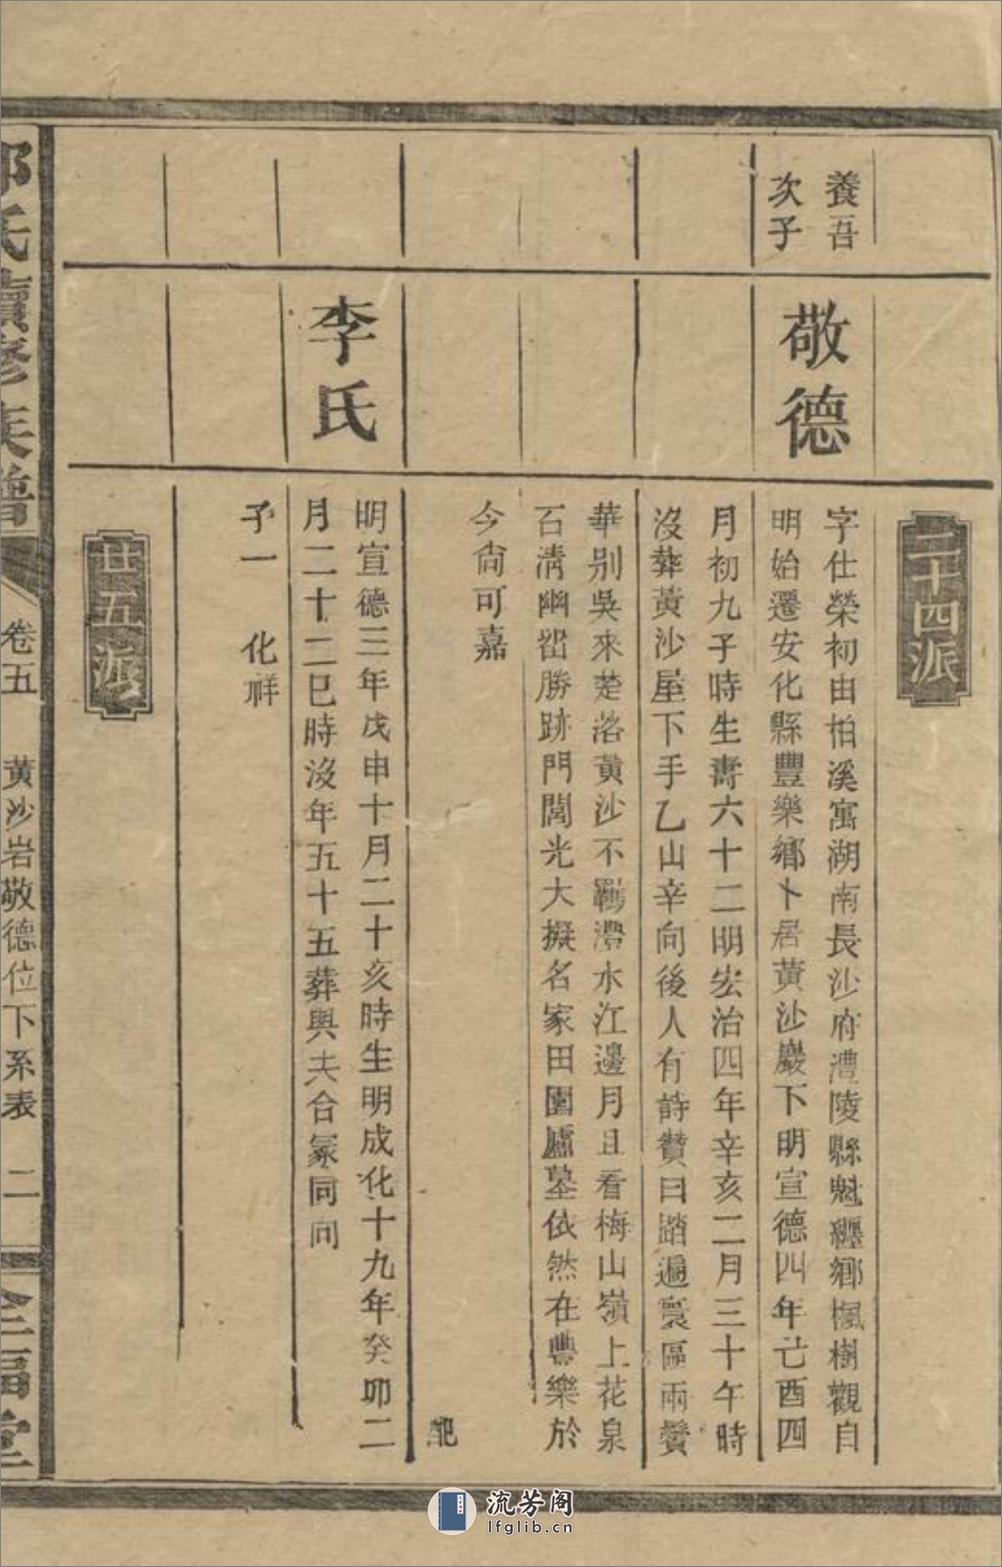 二十四派
養吾
次子
敬德
字仕榮初由柏溪寓湖南長沙府澧陵縣魁纒鄉楓樹觀自
明始遷安化縣豐樂鄉卜居黃沙巖下明宣德四年己酉四
月初九子時生壽六十二明宏治四年辛亥二月三十午時
沒葬黃沙屋下手乙山辛向後人有詩贊曰踏遍寰區兩鬢
華別吳來楚落黃沙不羈澧水江邊月且看梅山嶺上花泉
石清幽留勝跡門閭光大擬名家田園廬墓依然在豐樂於
今尙可嘉
配
李氏
明宣德三年戊申十月二十亥時生明成化十九年癸卯二
月二十二巳時沒年五十五葬與夫合冢同向
子一 化祥
廿五派
氏續修族譜
卷五 黃沙岩敬德位下系表 二
福堂
流芳阁
lfglib.cn